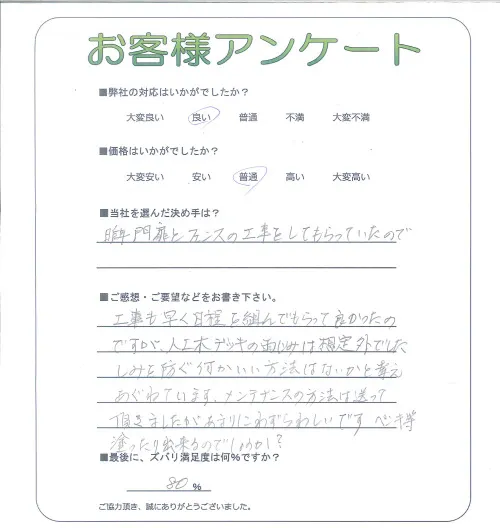 お客様アンケート
■弊社の対応はいかがでしたか？
大変良い 良い 普通 不満 大変不満
■価格はいかがでしたか？
大変安い 安い 普通 高い 大変高い
■当社を選んだ決め手は？
門扉とフェンスの工事をしてもらっていたので
■ご感想・ご要望などをお書き下さい。
工事も早く日程を組んでもらって良かったの
ですが、人工木デッキの雨じみは想定外でした
しみを防ぐ何かいい方法はないかと考え
あぐねています、メンテナンスの方法は送って
頂きましたがあまりにわずらわしいです ペンキ等
塗ったり出来るのでしょうか？
■最後に、ズバリ満足度は何%ですか？
80 %
ご協力頂き、誠にありがとうございました。